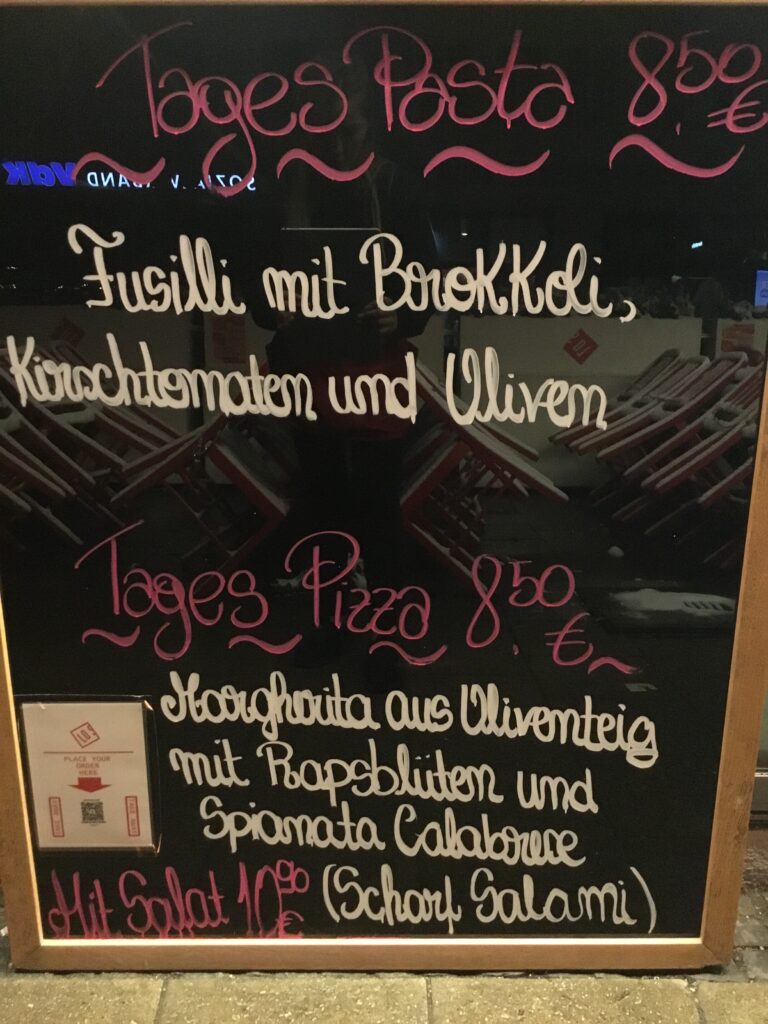 Tages Pasta 8.50 €
Fusilli mit Brokkoli,
Kirschtomaten und Oliven
Tages Pizza 8.50 €
Margherita aus Oliventeig
mit Rapsblüten und
Spianata Calabrese
Mit Salat 10.90 € (Scharf Salami)
PLACE YOUR
ORDER
HERE.